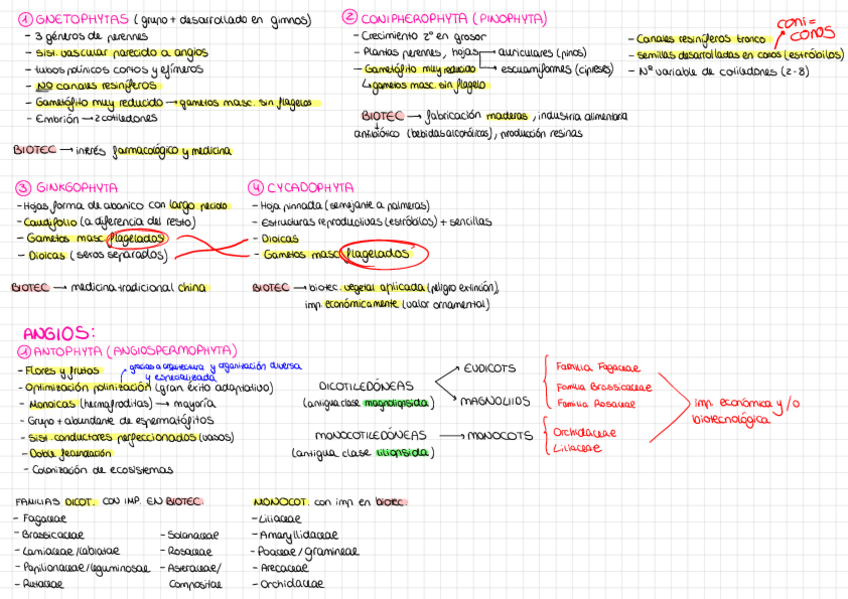 ① GNETOPHYTAS (grupo + desarrollado en gimnos)
- 3 géneros de perennes
- Sist. vascular parecido a angios
- tubos polínicos cortos y efímeros
- NO canales resiníferos
- Gametófito muy reducido → gametos masc. sin flagelos
- Embrión → 2 cotiledones
BIOTEC → interés farmacológico y medicina
② CONIPHEROPHYTA (PINOPHYTA)
- Crecimiento 2º en grosor
- Plantas perennes, hojas → auriculares (pinos)
→ escuamiformes (cipreses)
- Gametófito muy reducido
↳ gametos masc. sin flagelo
BIOTEC → fabricación maderas, industria alimentaria
antibiótico (bebidas alcohólicas), producción resinas
coni = conos
- Canales resiníferos tronco
- semillas desarrolladas en conos (estróbilos)
- Nº variable de cotiledones (2-8)
③ GINKGOPHYTA
- Hojas forma de abanico con largo peciolo
- Caudifolio (a diferencia del resto)
- Gametos masc. flagelados
- Dioicas (sexos separados)
BIOTEC → medicina tradicional china
④ CYCADOPHYTA
- Hoja pinnada (semejante a palmeras)
- Estructuras reproductivas (estróbilos) + sencillas
- Dioicas
- Gametos masc flagelados
BIOTEC → biotec. vegetal aplicada (peligro extinción),
imp. económicamente (valor ornamental)
ANGIOS:
① ANTOPHYTA (ANGIOSPERMOPHYTA)
- Flores y frutos
gracias a arquitectura y organización diversa
y especializada
- Optimización polinización (gran éxito adaptativo)
- Monoicas (hermafroditas) → mayoría
- Grupo + abundante de espermatófitos
- Sist. conductores perfeccionados (vasos)
- Doble fecundación
- Colonización de ecosistemas
DICOTILEDÓNEAS
(antigua clase magnoliopsida)
EUDICOTS
MAGNOLIIDS
MONOCOTILEDÓNEAS → MONOCOTS
(antigua clase liliopsida)
Familia Fagaceae
Familia Brassicaceae
Familia Rosaceae
Orchidaceae
Liliaceae
imp. económica y/o
biotecnológica
FAMILIAS DICOT. CON IMP. EN BIOTEC.
- Fagaceae
- Brassicaceae
- Lamiaceae/labiatae
- Papilionaceae/leguminosae
- Rutaceae
- Solanaceae
- Rosaceae
- Asteraceae/
Compositae
MONOCOT. con imp en biotec.
- Liliaceae
- Amaryllidaceae
- Poaceae/gramineae
- Arecaceae
- Orchidaceae